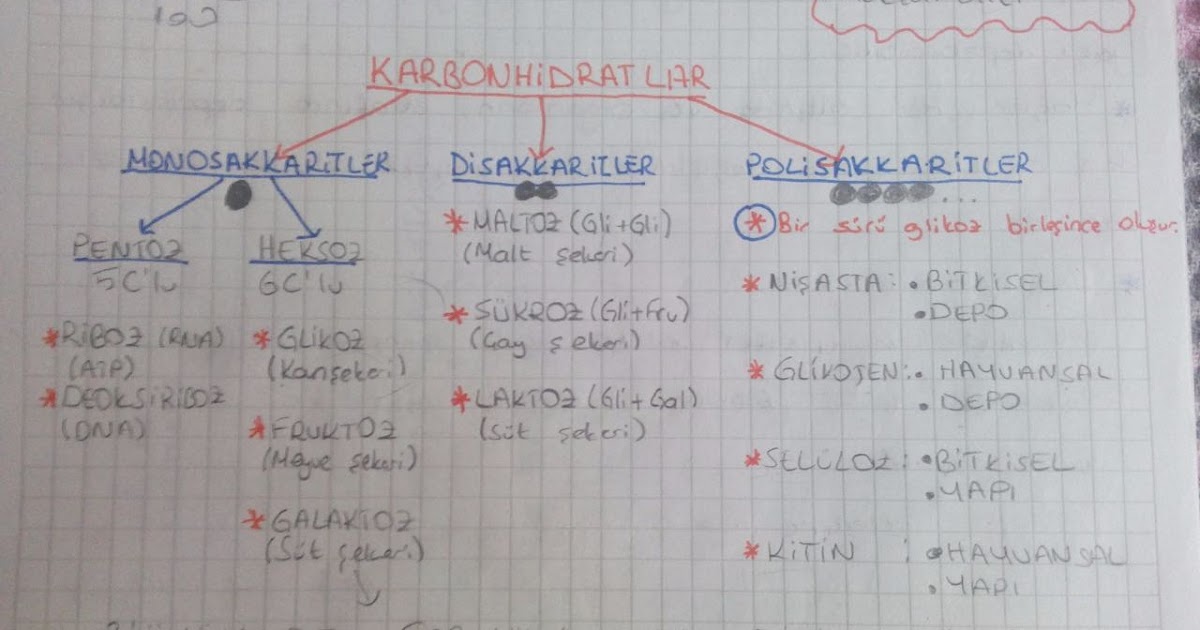 100
KARBONHİDRATLAR
MONOSAKKARİTLER
PENTOZ
5C'lu
*RİBOZ (RNA)
(ATP)
*DEOKSİRİBOZ
(DNA)
HEKSOZ
6C'lu
*GLİKOZ
(Kan şekeri)
*FRUKTOZ
(Meyve şekeri)
*GALAKTOZ
(Süt şekeri)
DİSAKKARİTLER
*MALTOZ (Gli+Gli)
(Malt şekeri)
*SÜKROZ (Gli+Fru)
(Çay şekeri)
*LAKTOZ (Gli+Gal)
(Süt şekeri)
POLİSAKKARİTLER
...
*Bir sürü glikoz birleşince oluşur.
*NİŞASTA: •BİTKİSEL
•DEPO
*GLİKOJEN: •HAYVANSAL
•DEPO
*SELÜLOZ: •BİTKİSEL
•YAPI
*KİTİN : •HAYVANSAL
•YAPI